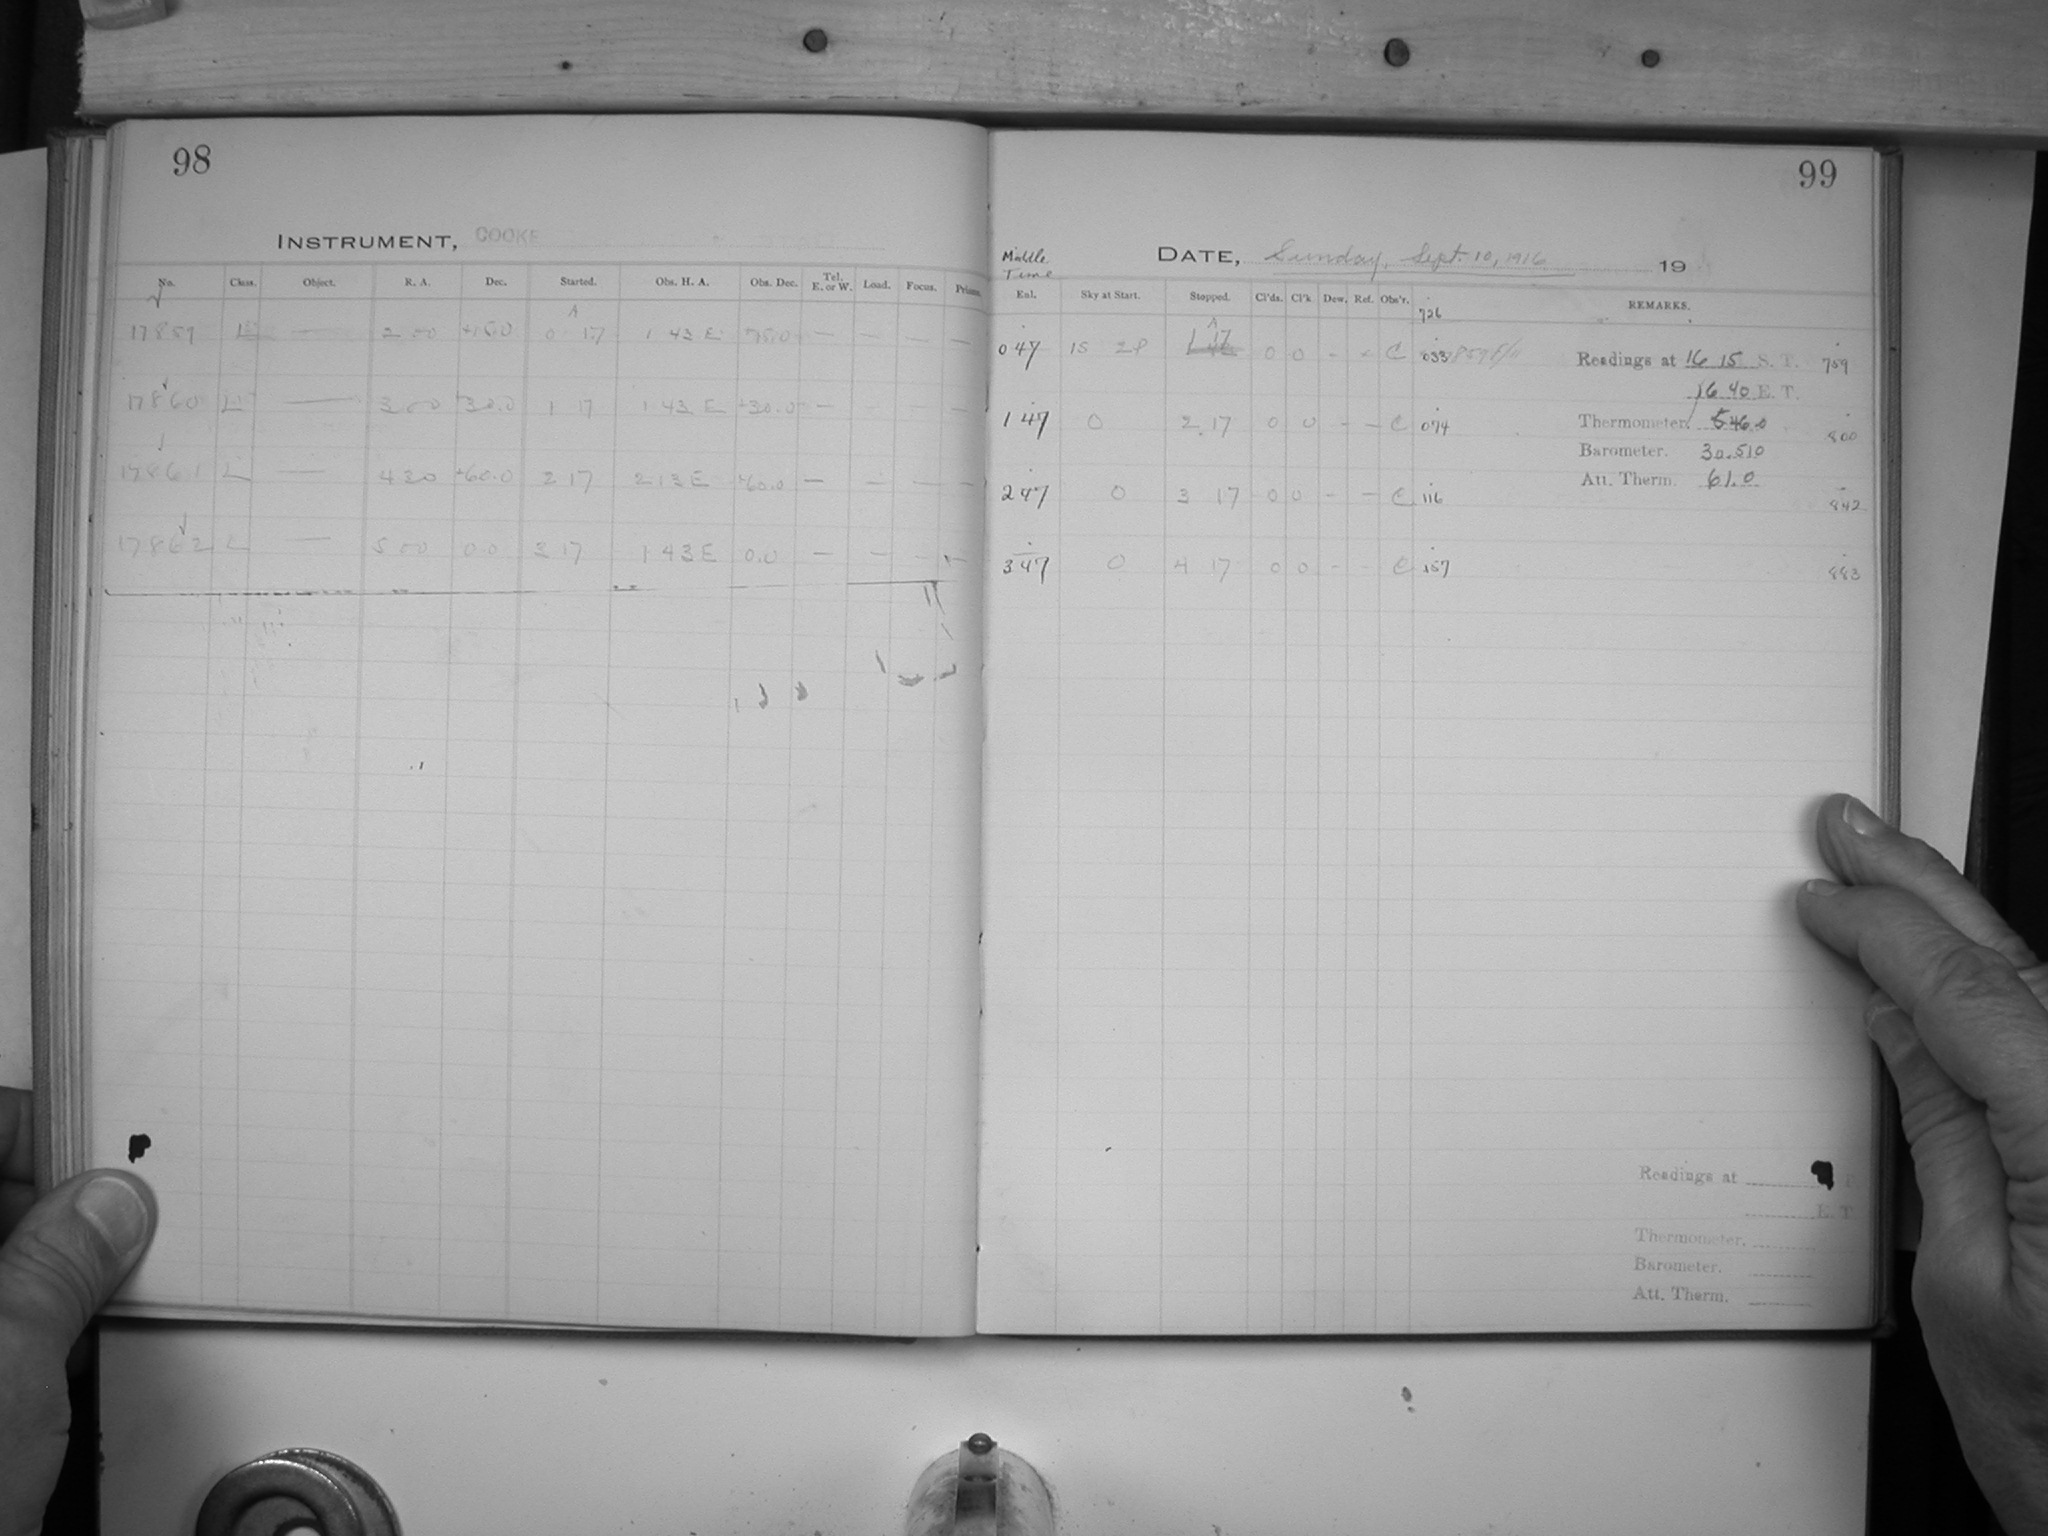 98
INSTRUMENT, COOKE
No. Class. Object. R. A. Dec. Started. Obs. H. A. Obs. Dec. Tel. E. or W. Load. Focus. Prisms.
17859 L — 2 00 +15.0 0 17 1 43 E — — — —
17860 L — 3 00 +30.0 1 17 1 43 E +30.0 — - - —
17861 L — 4 30 +60.0 2 17 2 13 E +60.0 — — — —
17862 L — 5 00 0.0 3 17 1 43 E 0.0 — — — —
99
DATE, Sunday, Sept. 10, 1916 19
Middle Time
Enl. Sky at Start. Stopped. Cl'ds. Cl'k Dew. Ref. Obs'r. REMARKS.
726
0 47 1S 2P 1 17 0 0 - - C 033 759
1 47 0 2 17 0 0 - — C 074 800
2 47 0 3 17 0 0 - — C 116 842
3 47 0 4 17 0 0 - - C 157 883
Readings at 16 15 S. T.
16 40 E. T.
Thermometer.
Barometer. 30.510
Att. Therm. 61.0
Readings at
E. T
Thermometer.
Barometer.
Att. Therm.